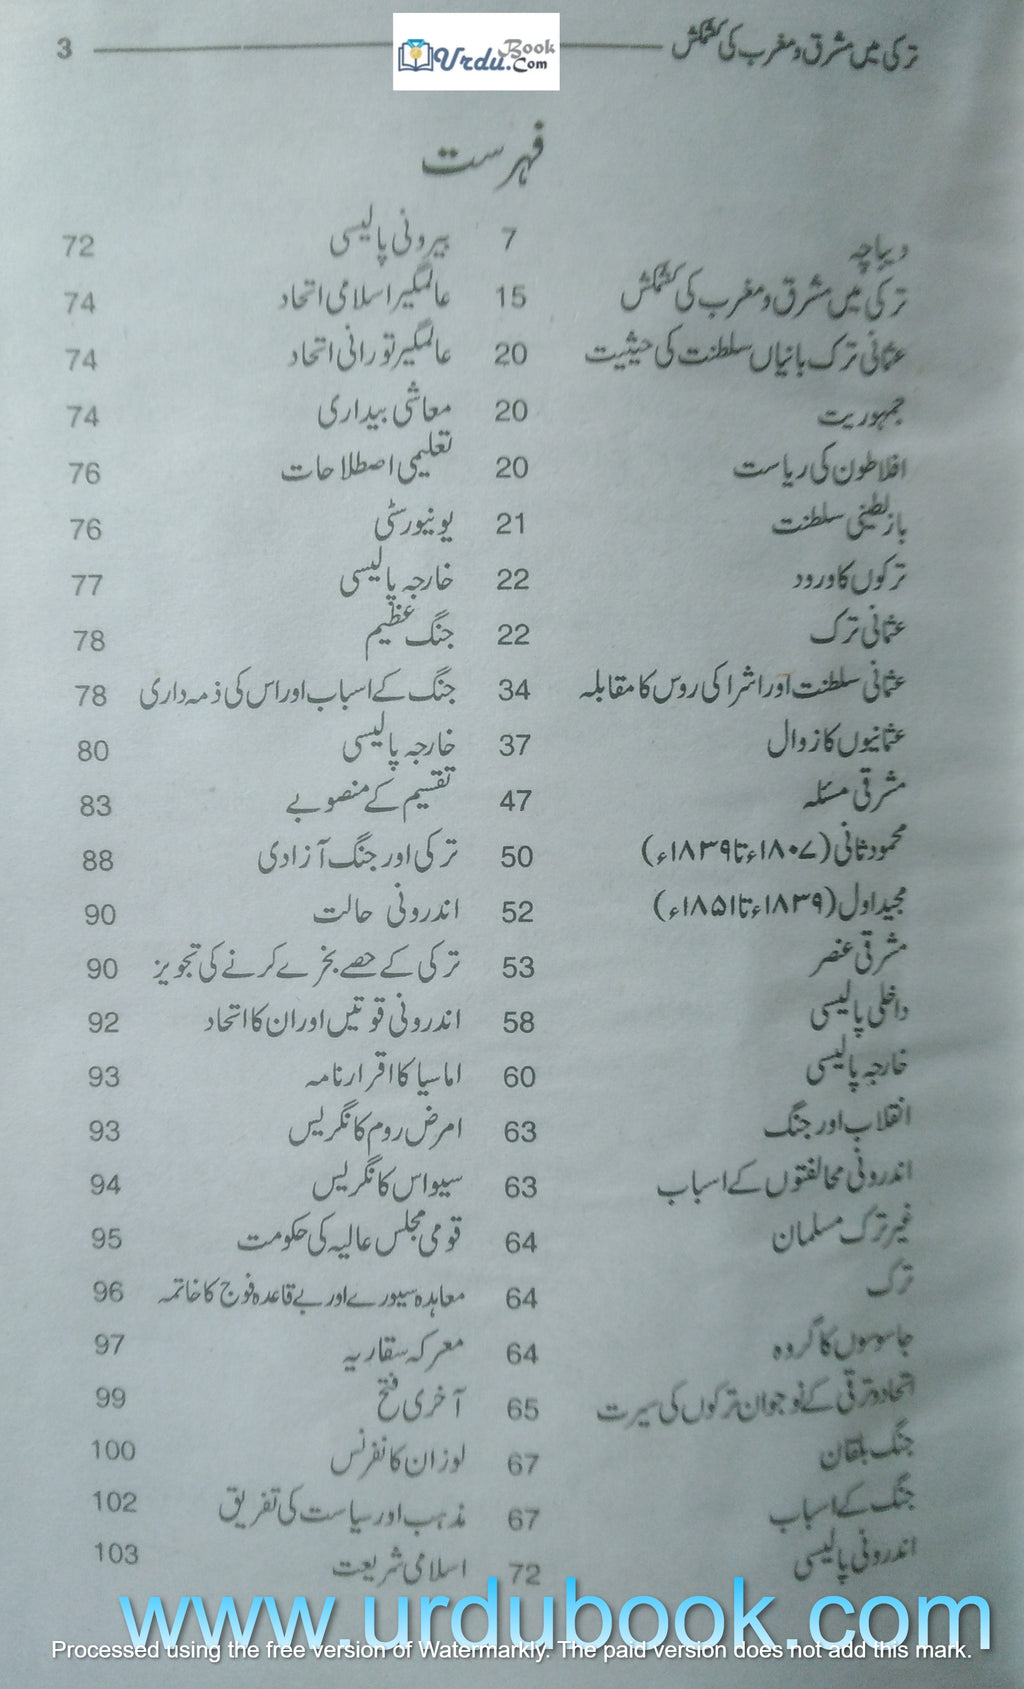 ترکی میں مشرق و مغرب کی کشمکش 3
UrduBook.Com
فہرست
دیباچہ 7
ترکی میں مشرق و مغرب کی کشمکش 15
عثمانی ترک بانیاں سلطنت کی حیثیت 20
جمہوریت 20
افلاطون کی ریاست 20
بازلطینی سلطنت 21
ترکوں کا ورود 22
عثمانی ترک 22
عثمانی سلطنت اور اشراکی روس کا مقابلہ 34
عثمانیوں کا زوال 37
مشرقی مسئلہ 47
محمود ثانی (۱۸۰۷ء تا ۱۸۳۹ء) 50
مجید اول (۱۸۳۹ء تا ۱۸۵۱ء) 52
مشرقی عنصر 53
داخلی پالیسی 58
خارجہ پالیسی 60
انقلاب اور جنگ 63
اندرونی مخالفتوں کے اسباب 63
غیر ترک مسلمان 64
ترک 64
جاسوسوں کا گروہ 64
اتحاد و ترقی کے نوجوان ترکوں کی سیرت 65
جنگ بلقان 67
جنگ کے اسباب 67
اندرونی پالیسی 72
بیرونی پالیسی 72
عالمگیر اسلامی اتحاد 74
عالمگیر تورانی اتحاد 74
معاشی بیداری 74
تعلیمی اصطلاحات 76
یونیورسٹی 76
خارجہ پالیسی 77
جنگ عظیم 78
جنگ کے اسباب اور اس کی ذمہ داری 78
خارجہ پالیسی 80
تقسیم کے منصوبے 83
ترکی اور جنگ آزادی 88
اندرونی حالت 90
ترکی کے حصے بخرے کرنے کی تجویز 90
اندرونی قوتیں اور ان کا اتحاد 92
اماسیا کا اقرارنامہ 93
امرض روم کانگریس 93
سیواس کانگریس 94
قومی مجلس عالیہ کی حکومت 95
معاہدہ سیورے اور بے قاعدہ فوج کا خاتمہ 96
معرکہ سقاریہ 97
آخری فتح 99
لوزان کانفرنس 100
مذہب اور سیاست کی تفریق 102
اسلامی شریعت 103
www.urdubook.com
Processed using the free version of Watermarkly. The paid version does not add this mark.